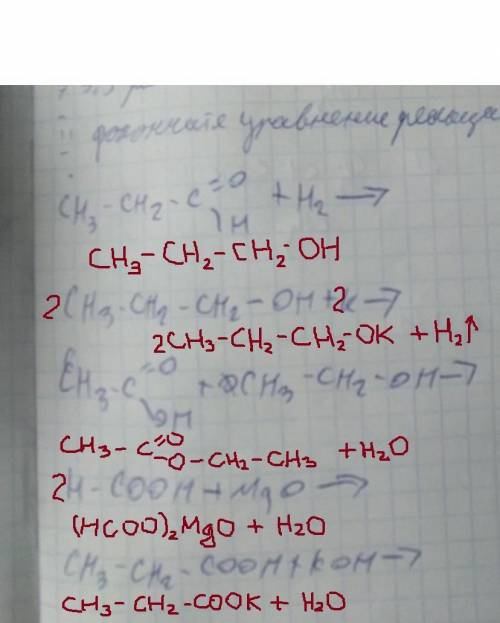 докончите уравнение реакции
CH₃-CH₂-C=O + H₂ →
\H
CH₃-CH₂-CH₂-OH
2CH₃-CH₂-CH₂-OH + 2K →
2CH₃-CH₂-CH₂-OK + H₂↑
CH₃-C=O + CH₃-CH₂-OH →
\OH
CH₃-C=O
-O-CH₂-CH₃ + H₂O
2H-COOH + MgO →
(HCOO)₂MgO + H₂O
CH₃-CH₂-COOH + KOH →
CH₃-CH₂-COOK + H₂O